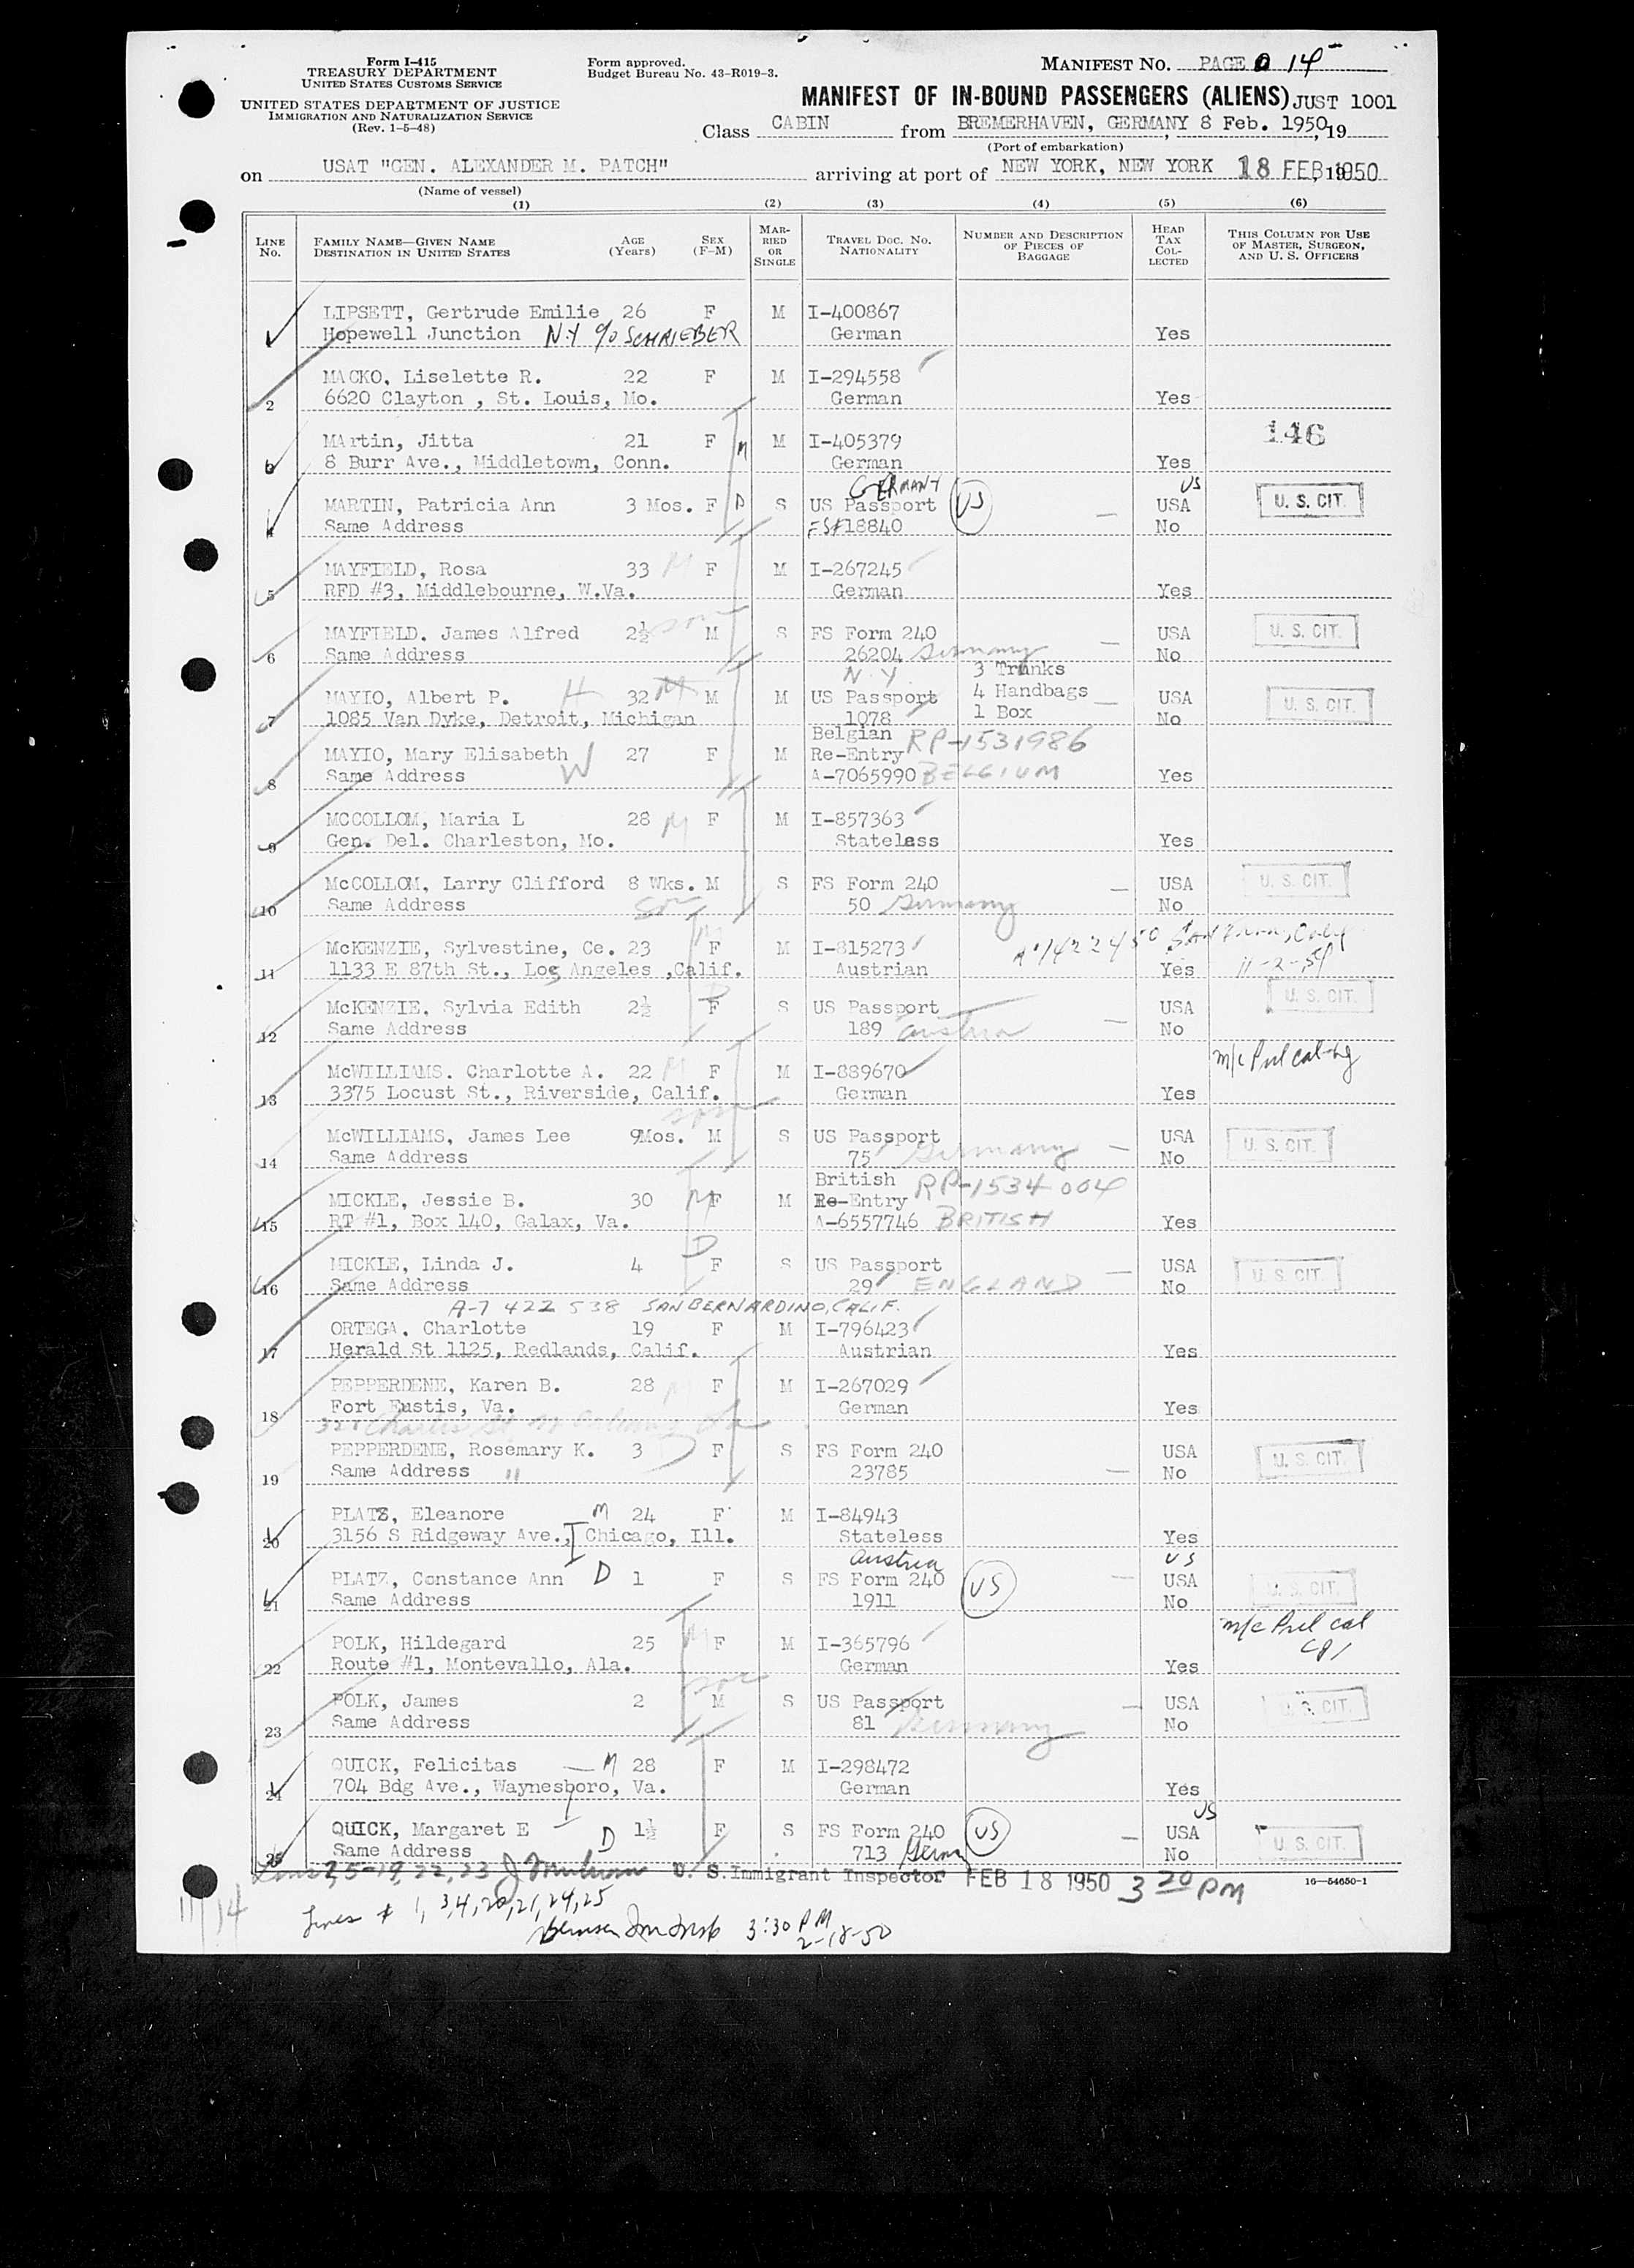 Form I-415
TREASURY DEPARTMENT
UNITED STATES CUSTOMS SERVICE
UNITED STATES DEPARTMENT OF JUSTICE
IMMIGRATION AND NATURALIZATION SERVICE
(Rev. 1-5-48)
Form approved.
Budget Bureau No. 43-R019-3.
MANIFEST NO. PAGE 14
MANIFEST OF IN-BOUND PASSENGERS (ALIENS) JUST 1001
Class CABIN from BREMERHAVEN, GERMANY, 8 Feb. 1950, 19
(Port of embarkation)
on USAT "GEN. ALEXANDER M. PATCH" arriving at port of NEW YORK, NEW YORK 18 FEB 1950
(Name of vessel)
(1) (2) (3) (4) (5) (6)
LINE NO. FAMILY NAME—GIVEN NAME DESTINATION IN UNITED STATES AGE (Years) SEX (F-M) MARRIED OR SINGLE TRAVEL DOC. NO. NATIONALITY NUMBER AND DESCRIPTION OF PIECES OF BAGGAGE HEAD TAX COLLECTED THIS COLUMN FOR USE OF MASTER, SURGEON, AND U. S. OFFICERS
LIPSETT, Gertrude Emilie 26 F M I-400867
Hopewell Junction N.Y c/o SCHRIEBER German Yes
MACKO, Liselette R. 22 F M I-294558
2 6620 Clayton , St. Louis, Mo. German Yes
MArtin, Jitta 21 F M M I-405379 146
3 8 Burr Ave., Middletown, Conn. German Yes
GERMANY US
MARTIN, Patricia Ann 3 Mos. F D S US Passport US USA U. S. CIT.
4 Same Address FS#18840 No
MAYFIELD, Rosa 33 M F M I-267245
5 RFD #3, Middlebourne, W.Va. German Yes
MAYFIELD. James Alfred 2½ son M S FS Form 240 USA U. S. CIT.
6 Same Address 26204 Germany No
N.Y. 3 Trunks
MAYIO, Albert P. H 32 M M US Passport 4 Handbags USA U. S. CIT.
7 1085 Van Dyke, Detroit, Michigan 1078 1 Box No
Belgian RP-1531986
MAYIO, Mary Elisabeth W 27 F M Re-Entry
8 Same Address A-7065990 BELGIUM Yes
MCCOLLOM, Maria L 28 M F M I-857363
9 Gen. Del. Charleston, Mo. Stateless Yes
McCOLLOM, Larry Clifford 8 Wks. M S FS Form 240 USA U. S. CIT.
10 Same Address Son 50 Germany No
McKENZIE, Sylvestine, Ce. 23 M F M I-815273
11 1133 E 87th St., Los Angeles ,Calif. Austrian Yes 11-2-54
McKENZIE, Sylvia Edith 2½ D F S US Passport USA U. S. CIT.
12 Same Address 189 Austria No
McWILLIAMS. Charlotte A. 22 M F M I-889670
13 3375 Locust St., Riverside, Calif. German Yes
McWILLIAMS, James Lee 9Mos. son M S US Passport USA U. S. CIT.
14 Same Address 75 Germany No
British RP-1534004
MICKLE, Jessie B. 30 M F M Re-Entry
15 RT #1, Box 140, Galax, Va. A-6557746 BRITISH Yes
MICKLE, Linda J. 4 D F S US Passport USA U. S. CIT.
16 Same Address 29 ENGLAND No
A-7 422 538 SAN BERNARDINO, CALIF.
ORTEGA. Charlotte 19 F M I-796423
17 Herald St 1125, Redlands, Calif. Austrian Yes
PEPPERDENE, Karen B. 28 M F M I-267029
18 Fort Eustis, Va. German Yes
PEPPERDENE, Rosemary K. 3 D F S FS Form 240 USA U. S. CIT.
19 Same Address " 23785 No
PLATZ, Eleanore M 24 F M I-84943
20 3156 S Ridgeway Ave., Chicago, Ill. Stateless Yes
Austria US
PLATZ, Constance Ann D 1 F S FS Form 240 US USA U. S. CIT.
21 Same Address 1911 No
POLK, Hildegard 25 M F M I-365796
22 Route #1, Montevallo, Ala. German Yes
POLK, James 2 son M S US Passport USA U. S. CIT.
23 Same Address 81 Germany No
QUICK, Felicitas M 28 F M I-298472
24 704 Bdg Ave., Waynesboro, Va. German Yes
US
QUICK, Margaret E D 1½ F S FS Form 240 US USA U. S. CIT.
25 Same Address 713 Germ No
Lines 2, 5-19, 22, 23 U. S. Immigrant Inspector FEB 18 1950 3 20 PM 16—54650-1
Lines # 1, 3, 4, 20, 21, 24, 25
3:30 PM
2-18-50